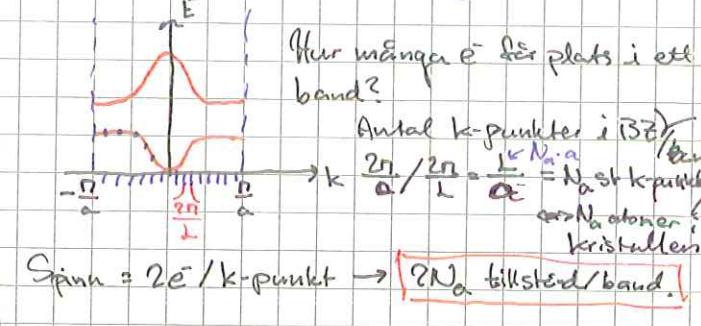 E
Hur många e⁻ får plats i ett
band?
Antal k-punkter i BZ/
k 2π/a / 2π/L = L/a = Nₐ st k-punkt
← Nₐ·a
-π/a
2π/L
π/a
⇔ Nₐ atomer i
kristallen
Spinn = 2e⁻/k-punkt → 2Nₐ tillstånd/band.